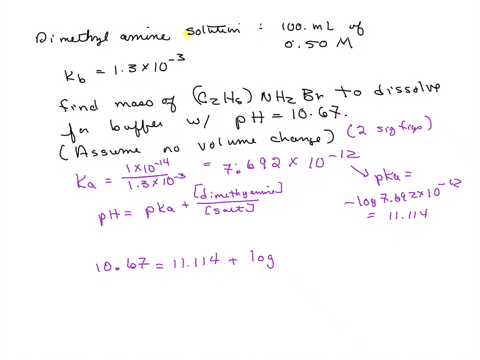 Dimethyl amine solution : 100. mL of
0.50 M
Kb = 1.3 × 10^-3
find mass of (C2H5) NH2 Br to dissolve
for buffer w/ pH = 10.67.
(Assume no volume change) (2 sig figs)
Ka = 1×10^-14 / 1.3×10^-3 = 7.692 × 10^-12
pKa =
-log 7.692×10^-12
= 11.114
pH = pKa + [dimethyamine] / [salt]
10.67 = 11.114 + log